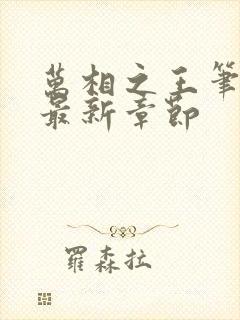 萬相之王筆
最新章節
羅森拉